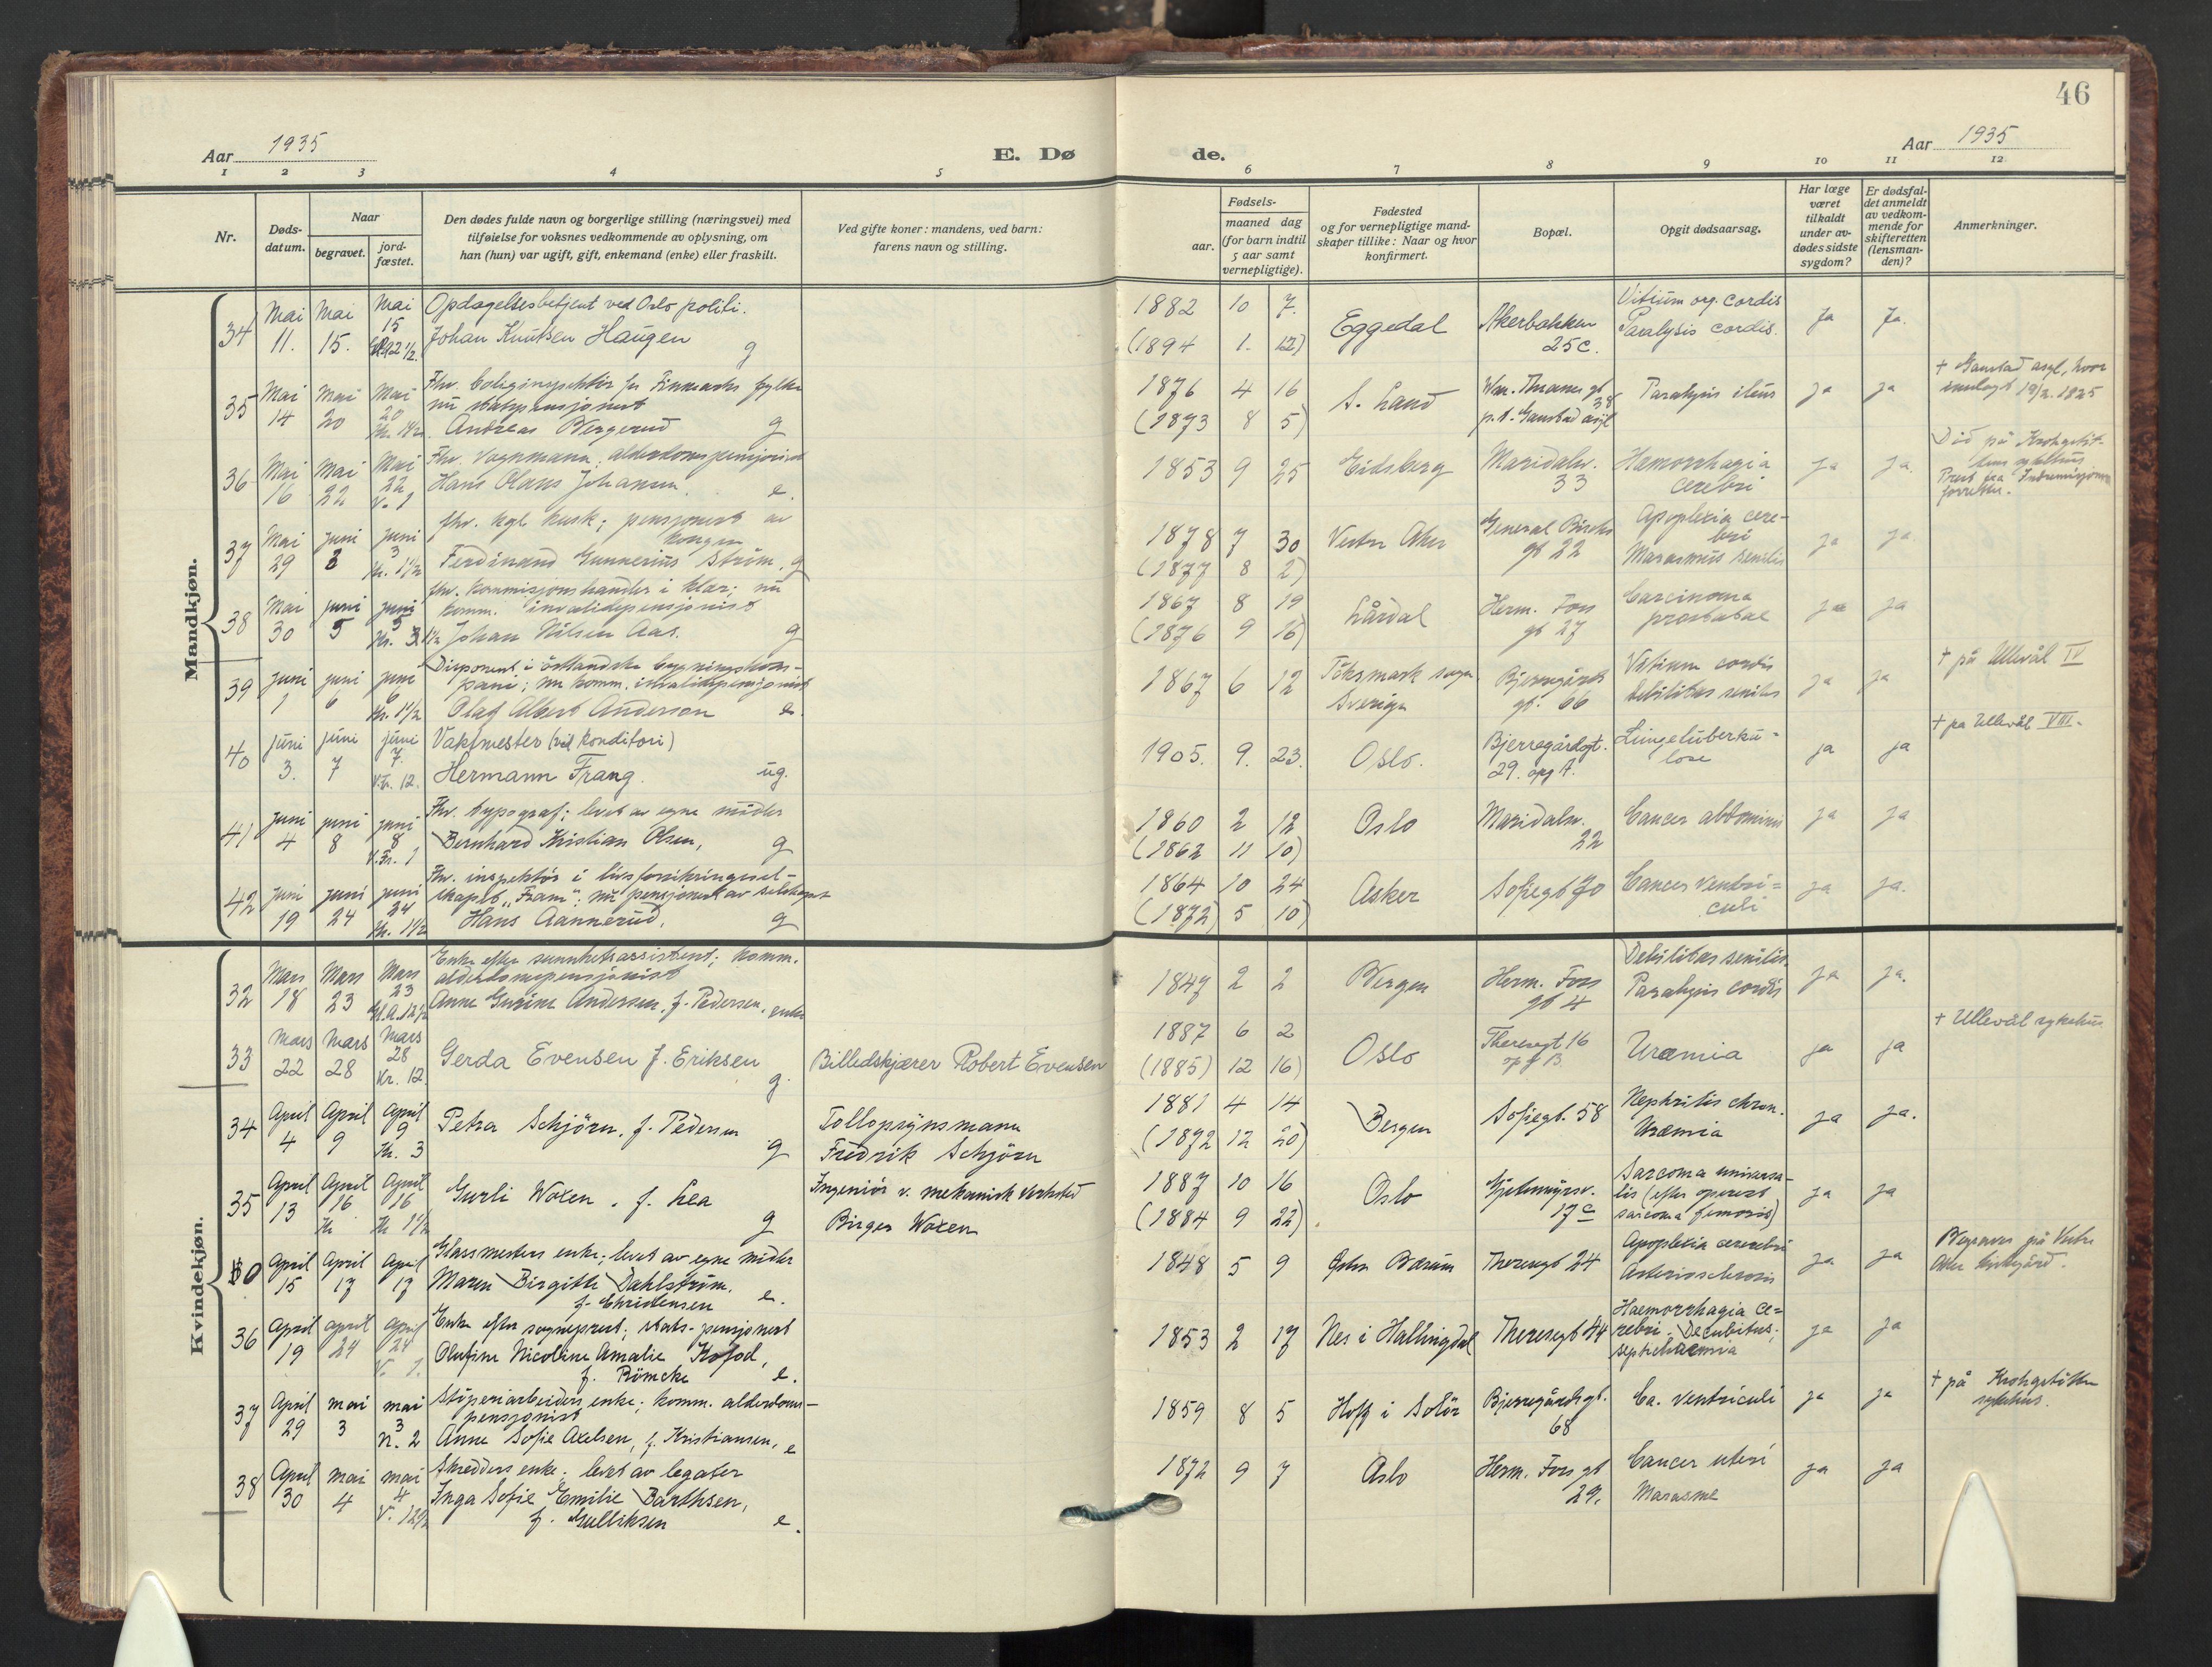 46
Aar 1935
E. Dø
de.
Aar 1935
1 2 3 4 5 6 7 8 9 10 11 12
Nr.
Døds-
datum.
Naar
begravet.
jord-
fæstet.
Den dødes fulde navn og borgerlige stilling (næringsvei) med
tilføielse for voksnes vedkommende av oplysning, om
han (hun) var ugift, gift, enkemand (enke) eller fraskilt.
Ved gifte koner: mandens, ved barn:
farens navn og stilling.
Fødsels-
aar.
maaned dag
(for barn indtil
5 aar samt
vernepligtige).
Fødested
og for vernepligtige mand-
skaper tillike: Naar og hvor
konfirmert.
Bopæl.
Opgit dødsaarsag.
Har læge
været
tilkaldt
under av-
dødes sidste
sygdom?
Er dødsfal-
det anmeldt
av vedkom-
mende for
skifteretten
(lensman-
den)?
Anmerkninger.
Mandkjøn.
34 Mai 11. Mai 15. Mai 15
Opdagelsesbetjent ved Oslo politi.
Johan Knutsen Haugen g
1882 10 7.
(1894 1. 12)
Eggedal
Akerbakken
25c.
Vitium org. cordis
Paralysis cordis.
Ja Ja.
35 Mai 14 Mai 20 Mai 20
Andreas Bergerud g
1876 4 16
(1873 8 5)
S. Land
p.t. Gaustad asyl
Paralysis ileus
ja ja
+ Gaustad asyl, hvor
innlagt 19/2. 1925
36 Mai 16 Mai 22 Mai 22 V. 1
Fhv. Vognmann, alderdomspensjonist
Hans Olaus Johansen. e.
1853 9 25
Eidsberg
Maridalsv.
33
Hæmorrhagia
cerebri
ja ja.
Død på Krohgstøt-
tens sykehus
37 Mai 29 juni 3 juni 3 Kr. 1 1/2
fhv. kgl. kusk; pensjonert av
kongen
Ferdinand Gunnerius Strøm, g
1878 7 30
(1877 8 2)
Vestre Aker
General Birchs
gt 22
Apoplexia cere-
bri
Marasmus senilis
ja ja
38 Mai 30 juni 5 juni 5 Kr. 3 1/2
fhv. kommisjonshandler i klær; nu
komm. invalidepensjonist
Johan Nilsen Aas. g
1867 8 19
(1876 9 16)
Lårdal
Herm. Foss
gt 27
Carcinoma
prostatae
ja ja
39 juni 1 juni 6 juni 6 Kr. 1 1/2
Disponent i østlandske bygningskom-
pani; nu komm. invalidepensjonist
Olaf Albert Anderson e.
1867 6 12
Töksmark sogn
Sverige
Bjerregårds
gt. 66
Vitium cordis
Debilitas senilis
ja ja
+ på Ullevål IV
40 juni 3. juni 7 juni 7. V.Fr. 12.
Vaktmester (vel konditori)
Hermann Frang. ug.
1905. 9. 23.
Oslo.
Bjerregårdgt.
29. opg A.
Lungetuberku-
lose
ja ja
+ på Ullevål VIII.
41 juni 4 juni 8 juni 8 V.Fr. 1
Fhv. typograf; levet av egne midler
Bernhard Kristian Olsen, g
1860 2 12
(1862 11 10)
Oslo
Maridalsv.
22
Cancer abdominis
ja ja
42 juni 19 juni 24 juni 24 Kr. 1 1/2
Fhv. inspektør i livsforsikringssel-
skapet "Fram"; nu pensjonert av selskapet
Hans Aannerud, g
1864 10 24
(1872) 5 10)
Asker
Sofiegt 70
Cancer ventri-
culi
ja ja.
Kvindekjøn.
32 Mars 18 Mars 23 Mars 23
Enke efter sunnhetsassistent; komm.
alderdomspensjonist
Anne Gurine Andersen, f. Pedersen, enke
1847 2 2
Bergen
Herm. Foss
gt 4
Debilitas senilis.
Paralysis cordis
ja ja.
33 Mars 22 Mars 28 Mars 28 Kr. 12
Gerda Evensen f. Eriksen g.
Billedskjærer Robert Evensen
1887 6 2
(1885) 12 16)
Oslo
Theresegt 16
opg B.
Uræmia
ja ja
+ Ullevål sykehus
34 April 4 April 9 April 9 Kr. 3
Petra Schjörn, f. Pedersen g
Tollopsynsmann
Fredrik Schjörn
1881 4 14
(1872 12 20)
Bergen
Sofiegt. 58
Nephritis chron.
Uræmia
ja ja.
35 April 13 April 16 Kr April 16 Kr 1 1/2
Gurli Woxen, f. Lea g
Ingeniör v. mekanisk verksted
Birger Woxen
1887 10 16
(1884 9 22)
Oslo
Gjetemyrsv.
17c
Sarcoma universa-
lis (efter operert
sarcoma femoris)
ja ja
0 April 15 April 17 April 17
Glassmesters enke; levet av egne midler
Maren Birgitte Dahlström,
f. Christensen e.
1848 5 9
Østre Bærum
Theresegt 24
Apoplexia cerebri
Arteriosclerosis
ja ja
Begraves på Vestre
Aker kirkegård.
36 April 19 april 24 april 24 V. 1.
Enke efter sogneprest; stats-pensjonert
Olufine Nicoline Amalie Kofod,
f. Römcke e.
1853 2 17
Nes i Hallingdal
Theresegt 44
Haemorrhagia ce-
rebri. Decubitus;
septichaemia
ja ja
37 April 29 mai 3 mai 3 N. 2
Støperiarbeiders enke; komm. alderdoms-
pensjonist
Anne Sofie Axelsen, f. Kristiansen, e
1859 8 5
Hoff i Solör
Bjerregårdsgt.
68
Ca. ventriculi
ja ja
+ på Krohgstøtten
sykehus.
38 April 30 mai 4 mai 4 V. 12 1/2
Skredders enke; levet av legater
Inga Sofie Emilie Barthsen,
f. Gulliksen e.
1872 9 7
Oslo
Herm. Foss gt
29.
Cancer uteri
Marasme
ja ja